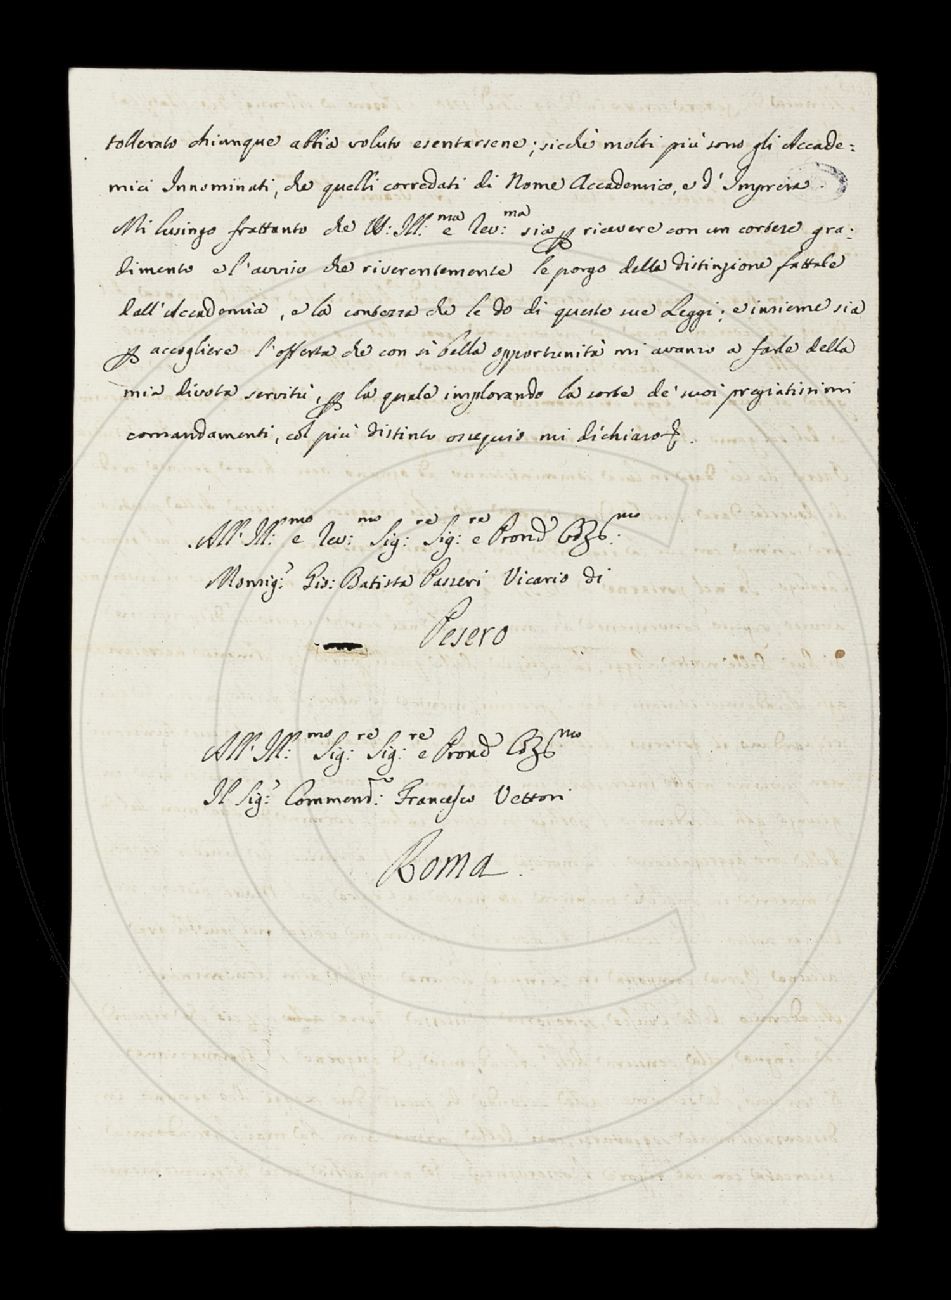 tollerato chiunque abbia voluto esentarsene; sicchè molti più sono gli Accade:
mici Innominati, che quelli corredati di Nome Accademico, e d'Impresa.
Mi lusingo frattanto che V.S: Ill:ma e Rev:ma sia p ricevere con un cortese gra:
dimento e l'avviso che riverentemente le porgo della distinzione fattale
dall'Accademia, e la contezza che le do di queste sue Leggi; e insieme sia
p accogliere l'offerta che con sì bella opportunità mi avanzo a farle della
mia divota servitù, p la quale implorando la sorte de' suoi pregiatissimi
comandamenti, col più distinto ossequio mi dichiaro
All' Ill:mo e Rev:mo Sig:re Sig:re e Prone
Monsig.r Gio: Batista Passeri Vicario di
Pesero
All' Ill:mo Sig:re Sig:re e Prone
Il Sig.r Commend: Francesco Vettori
Roma.